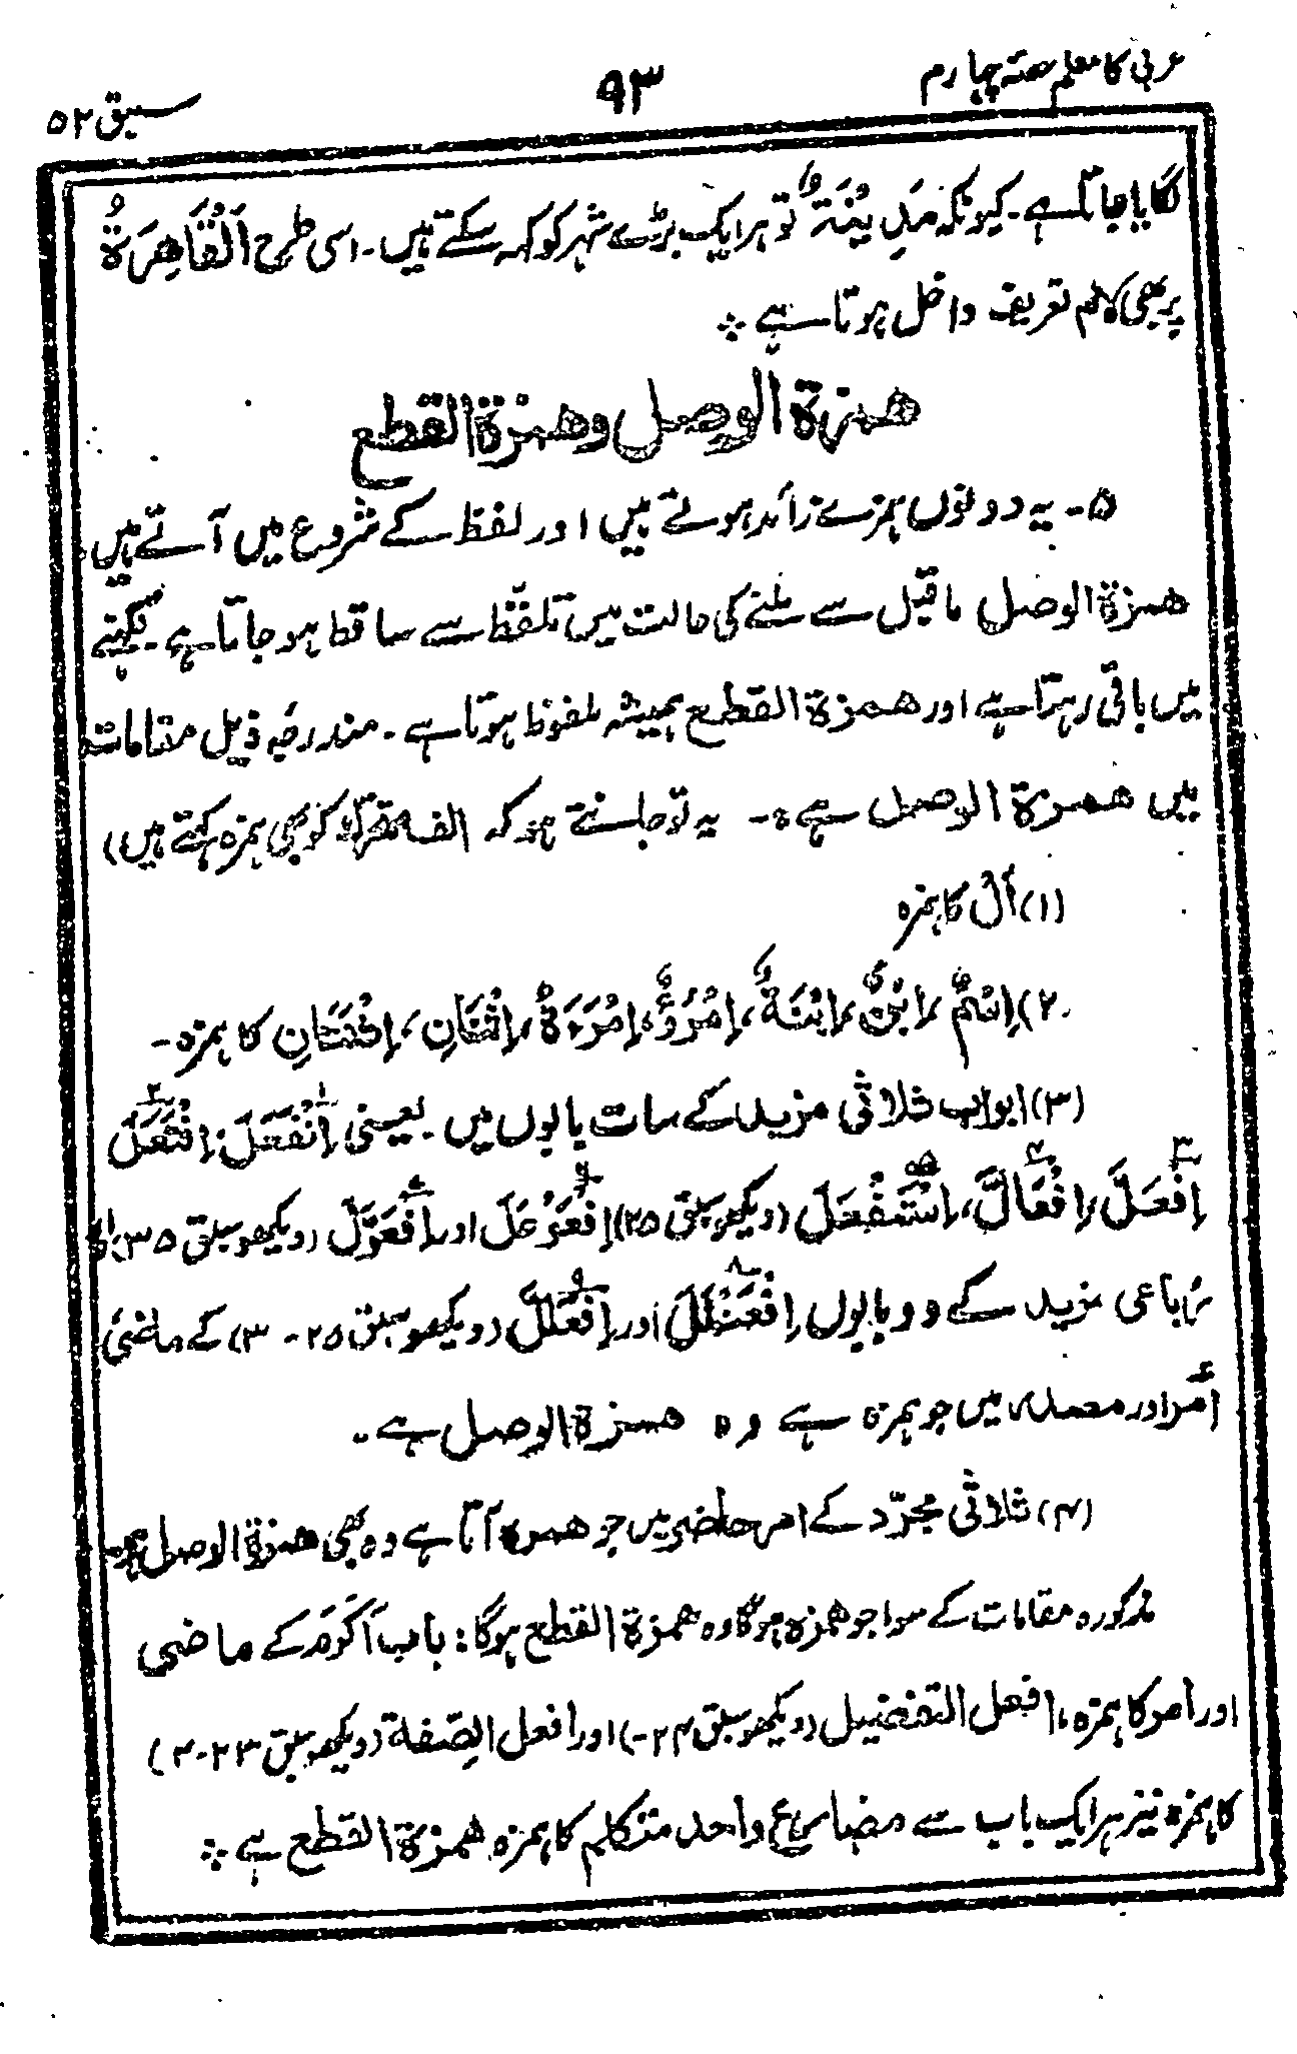 عربی کا معلم حصّہ چہارم
۹۳
سبق ۵۲
لگایا جاتا ہے۔ کیونکہ مَدِیْنَۃٌ تو ہر ایک بڑے شہر کو کہہ سکتے ہیں۔ اسی طرح اَلْقَاھِرَۃُ
پر بھی لام تعریف داخل ہوتا ہے ؞
ھمزۃ الوصل و ھمزۃ القطع
۵۔ یہ دونوں ہمزے زائد ہوتے ہیں اور لفظ کے شروع میں آتے ہیں۔
ھمزۃ الوصل ماقبل سے ملنے کی حالت میں تلفّظ سے ساقط ہو جاتا ہے۔ لکھنے
میں باقی رہتا ہے اور ھمزۃ القطع ہمیشہ ملفوظ ہوتا ہے۔ مندرجہ ذیل مقامات
میں ھمزۃ الوصل ہے:۔ یہ تو جانتے ہو کہ الف متحرّکہ کو بھی ہمزہ کہتے ہیں)
(۱) اَلْ کا ہمزہ
(۲) اِسْمٌ، اِبْنٌ، اِبْنَۃٌ، اِمْرُؤٌ، اِمْرَءَۃٌ، اِثْنَانِ، اِثْنَتَانِ کا ہمزہ۔
(۳) ابواب ثلاثی مزید کے سات بابوں میں یعنی اِنْفَعَلَ۱، اِفْتَعَلَ۲
اِفْعَلَّ۳، اِفْعَالَّ۴، اِسْتَفْعَلَ۵ (دیکھو سبق ۲۵) اِفْعَوْعَلَ۶ اور اِفْعَوَّلَ۷ (دیکھو سبق ۲۵-۳) اور
رُباعی مزید کے دو بابوں اِفْعَنْلَلَ۸ اور اِفْعَلَلَّ۹ (دیکھو سبق ۲۵-۳) کے ماضی
امر اور مصدر میں جو ہمزہ ہے وہ ھمزۃ الوصل ہے۔
(۴) ثلاثی مجرّد کے امر حاضر میں جو ھمزہ آتا ہے وہ بھی ھمزۃ الوصل ہے۔
مذکورہ مقامات کے سوا جو ھمزہ ہوگا وہ ھمزۃ القطع ہوگا: باب اَکْرَمَ کے ماضی
اور امر کا ہمزہ، افعل التفضیل (دیکھو سبق ۲۴-) اور افعل الصِّفۃ (دیکھو سبق ۲۳-۴)
کا ہمزہ نیز ہر ایک باب سے مضارع واحد متکلم کا ہمزہ ھمزۃ القطع ہے ؞